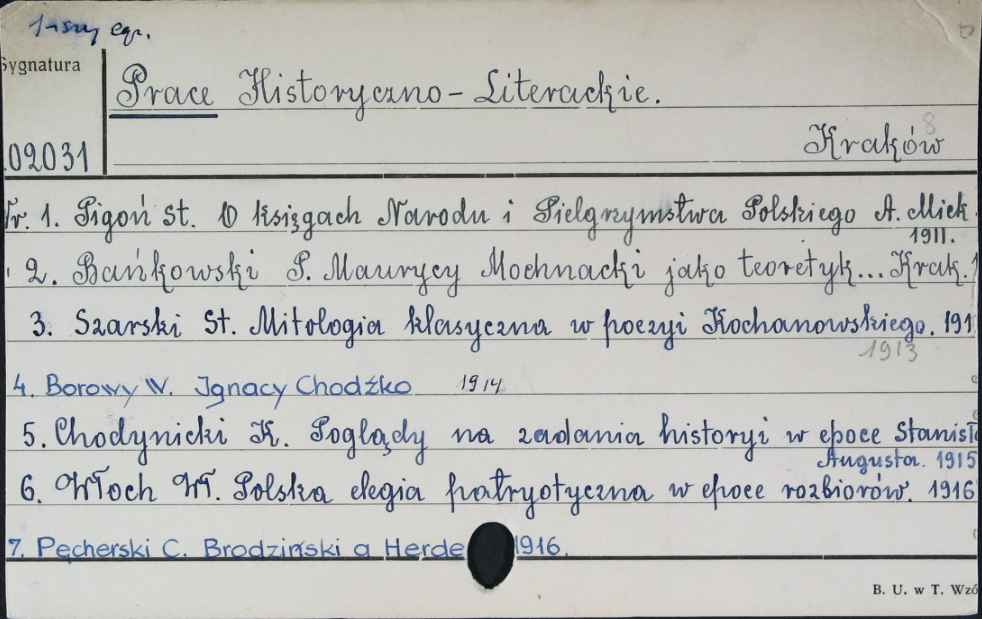 1-szy egz.
Sygnatura
Prace Historyczno-Literackie.
8
Kraków
02031
Nr. 1. Pigoń St. O księgach Narodu i Pielgrzymstwa Polskiego A. Mick.
1911.
2. Bańkowski P. Maurycy Mochnacki jako teoretyk... Krak. 1
3. Szarski St. Mitologia klasyczna w poezyi Kochanowskiego. 191
1913
4. Borowy W. Ignacy Chodźko 1914
5. Chodynicki K. Poglądy na zadania historyi w epoce Stanisł
Augusta. 1915
6. Włoch Wł. Polska elegia patryotyczna w epoce rozbiorów. 1916
7. Pęcherski C. Brodziński a Herde 1916.
B. U. w T. Wzó